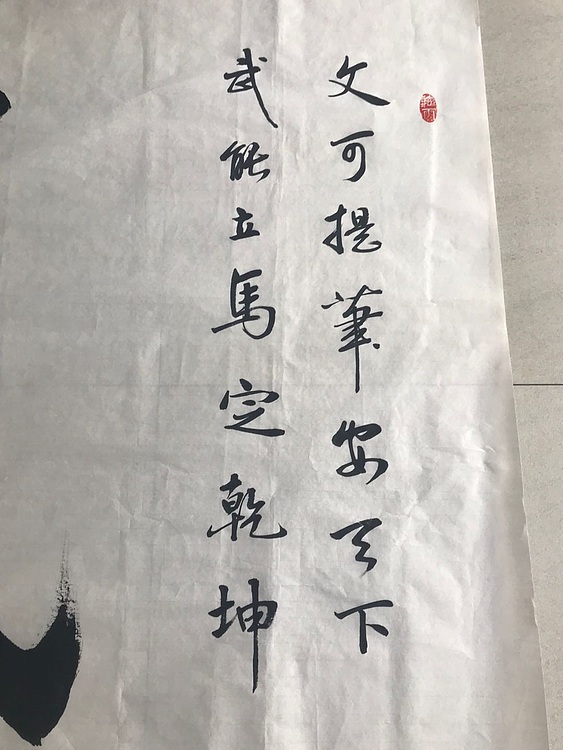 文可提筆安天下
武能立馬定乾坤